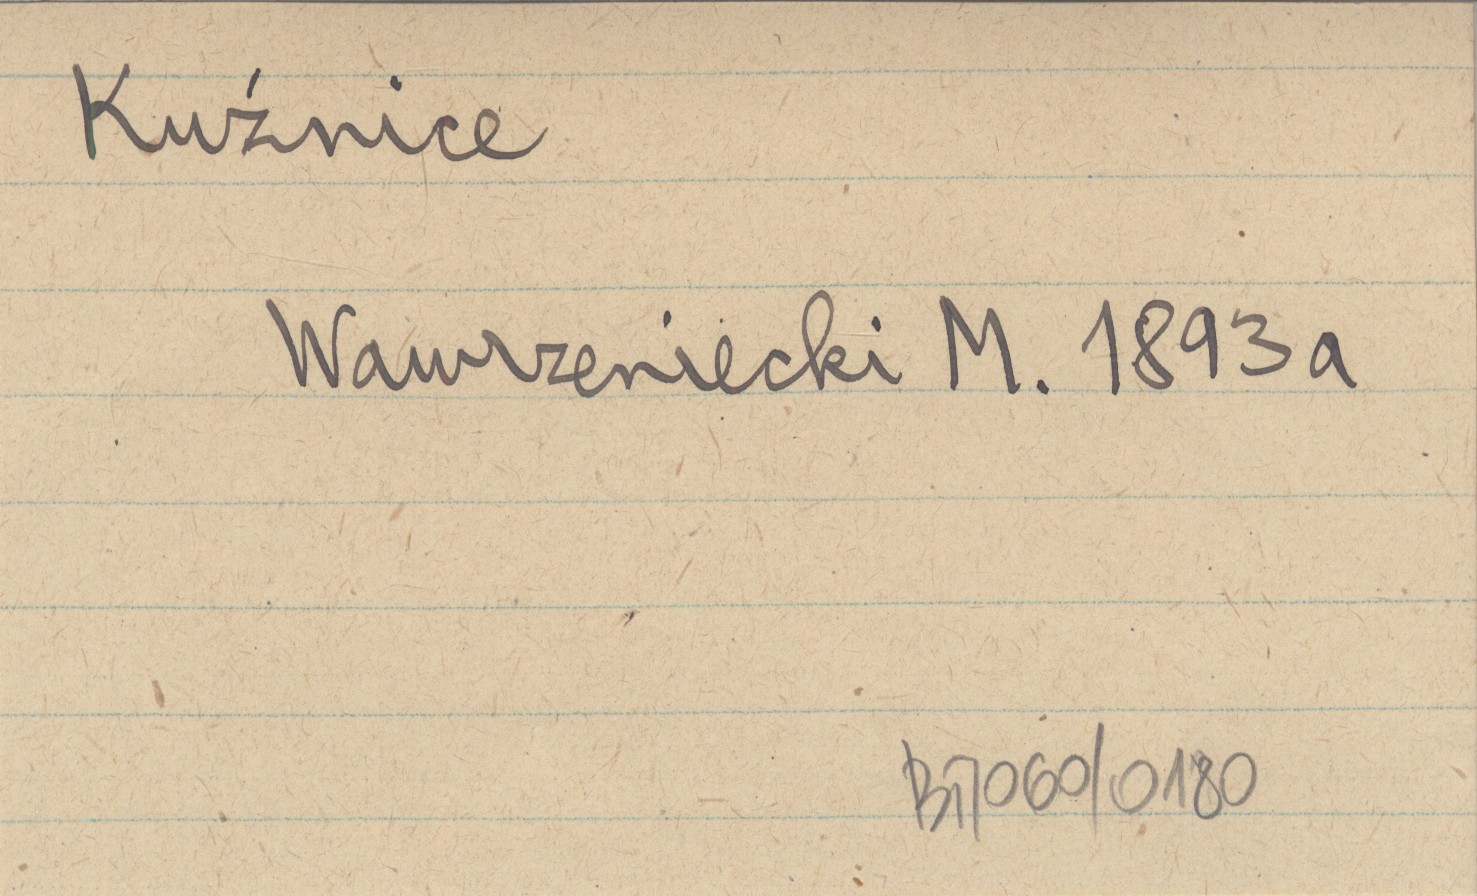 Kuźnice
Wawrzeniecki M. 1893a
060/0180